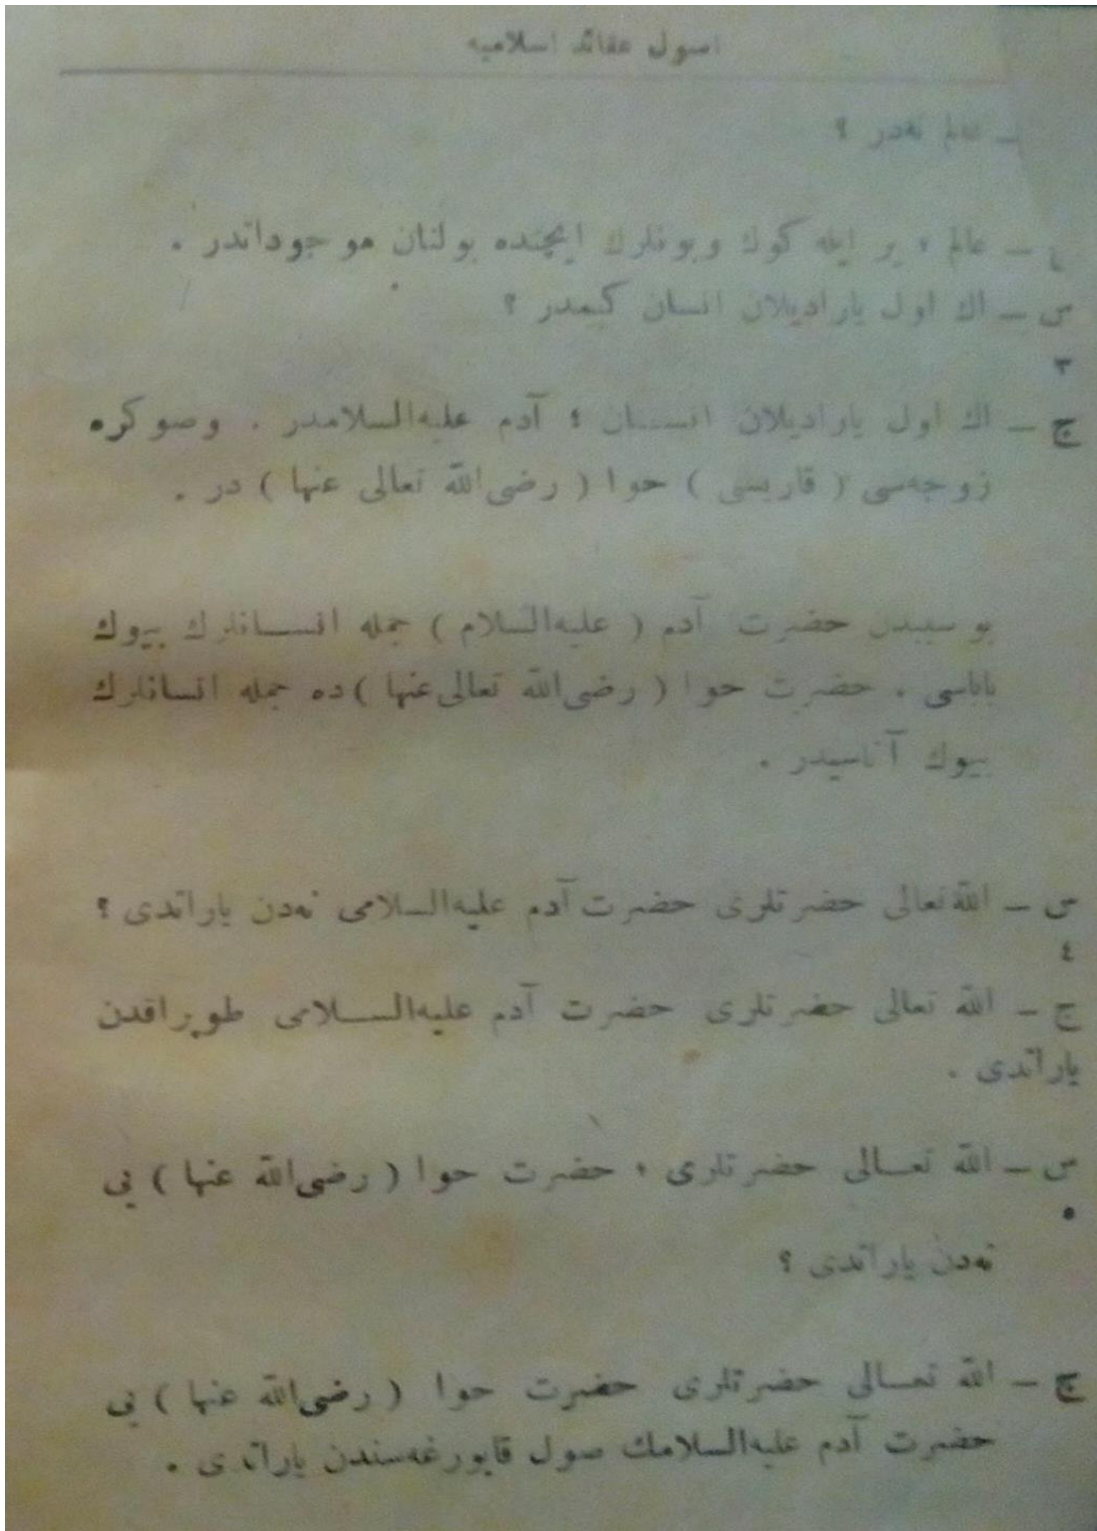 اصول عقائد اسلامیه
ـ عالم نه‌در ؟
ـ عالم ، یر ایله كوك وبونلرك ایچنده بولنان موجوداتدر .
س ـ اك اول یارادیلان انسان كیمدر ؟
٣
ج ـ اك اول یارادیلان انســان ؛ آدم علیه‌السلامدر . وصوكره
زوجه‌سی ( قاریسی ) حوا ( رضی‌الله تعالی عنها ) در .
بو سببدن حضرت آدم ( علیه‌السلام ) جمله انســانلرك بیوك
باباسی . حضرت حوا ( رضی‌الله تعالی عنها ) ده جمله انسانلرك
بیوك آناسیدر .
س ـ الله تعالی حضرتلری حضرت آدم علیه‌السلامی نه‌دن یاراتدی ؟
٤
ج ـ الله تعالی حضرتلری حضرت آدم علیه‌الســلامی طوپراقدن
یاراتدی .
س ـ الله تعــالی حضرتلری ، حضرت حوا ( رضی‌الله عنها ) یی
٥
نه‌دن یاراتدی ؟
ج ـ الله تعــالی حضرتلری حضرت حوا ( رضی‌الله عنها ) یی
حضرت آدم علیه‌السلامك صول قابورغه‌سندن یاراتدی .